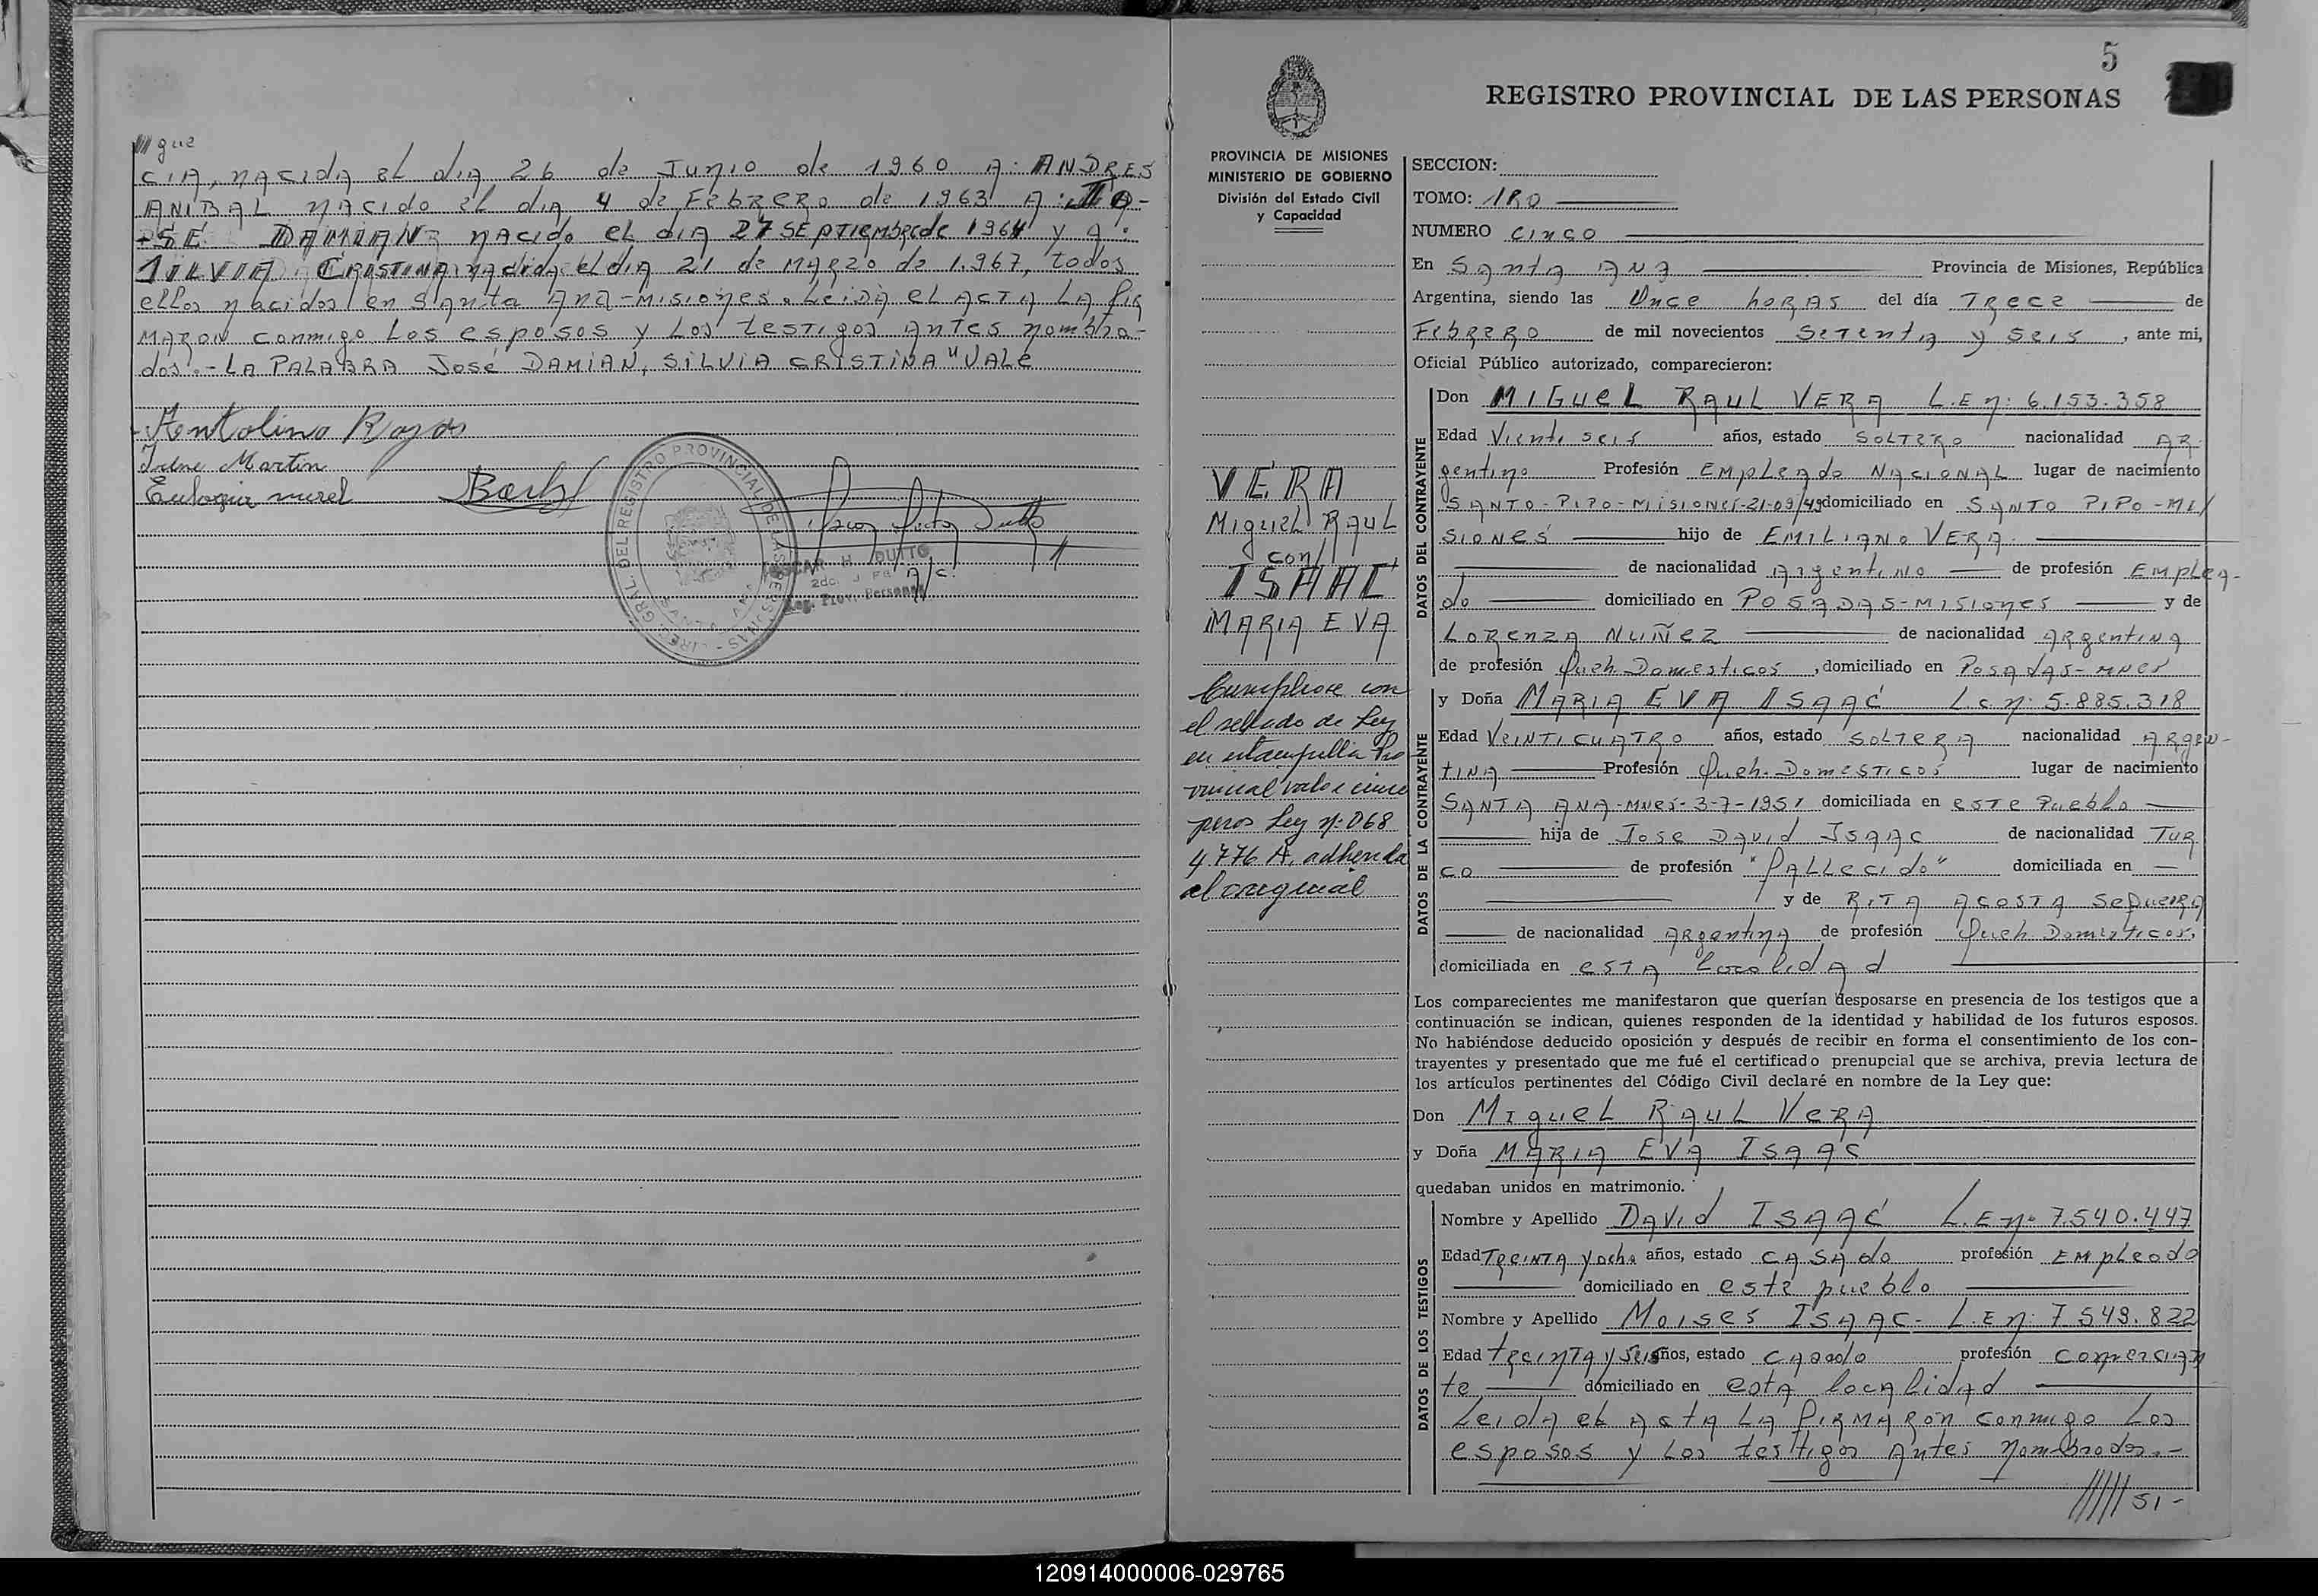 que
cia, nacida el dia 26 de Junio de 1960 A: ANDRES
ANIBAL nacido el dia 4 de Febrero de 1963 A: JO-
-SÉ DAMIAN nacido el dia 27 SEPTIEMbre de 1964 y a:
SILVIA CRISTINA nacida el dia 21 de Marzo de 1.967, todos
ellos nacidos en Santa Ana-Misiones. Leida el ACTA LA fir
maron conmigo Los esposos y Los testigos Antes nombra-
dos.- LA PALABRA José DAMIAN, SILVIA CRISTINA" VALE
Rojas
Irene Martin
Eulogia
OSCAR H. DUTTO
A/C.
Reg. Prov. Personas
5
REGISTRO PROVINCIAL DE LAS PERSONAS
PROVINCIA DE MISIONES
MINISTERIO DE GOBIERNO
División del Estado Civil
y Capacidad
VERA
Miguel RAUL
con
ISAAC
MARIA EVA
Cumpliose con
el sellado de Ley
en estampilla Pro
vincial valor cinco
pesos Ley nº 068
4776 A. adherida
al original
SECCION:
TOMO: 1RO
NUMERO CINCO
En Santa Ana Provincia de Misiones, República
Argentina, siendo las Once horas del día Trece de
Febrero de mil novecientos Setenta y Seis, ante mi,
Oficial Público autorizado, comparecieron:
DATOS DEL CONTRAYENTE
Don MIGUEL RAUL VERA L.E n: 6.153.358
Edad Vienti seis años, estado SOLTERO nacionalidad AR-
gentino Profesión EMPLEADO NACIONAL lugar de nacimiento
SANTO-PIPO-MISIONES-21-09/49 domiciliado en SANTO PIPO-MI/
SIONES hijo de EMILIANO VERA
de nacionalidad Argentino de profesión EMPLEA-
do domiciliado en POSADAS-MISIONES y de
LORENZA NUÑEZ de nacionalidad Argentina
de profesión Queh. Domesticos, domiciliado en POSADAS-MNES
DATOS DE LA CONTRAYENTE
y Doña MARIA EVA ISAAC L.C n: 5.885.318
Edad VEINTICUATRO años, estado SOLTERA nacionalidad ARGEN-
TINA Profesión Queh. DOMESTICOS lugar de nacimiento
SANTA ANA-MNES-3-7-1951 domiciliada en este Pueblo
hija de JOSE DAVID ISAAC de nacionalidad TUR
CO de profesión "FALLECIDO" domiciliada en —
y de RITA ACOSTA SEQUEIRA
de nacionalidad Argentina de profesión Queh. Domesticos,
domiciliada en esta Localidad
Los comparecientes me manifestaron que querían desposarse en presencia de los testigos que a
continuación se indican, quienes responden de la identidad y habilidad de los futuros esposos.
No habiéndose deducido oposición y después de recibir en forma el consentimiento de los con-
trayentes y presentado que me fué el certificado prenupcial que se archiva, previa lectura de
los artículos pertinentes del Código Civil declaré en nombre de la Ley que:
Don MIGUEL RAUL VERA
y Doña MARIA EVA ISAAC
quedaban unidos en matrimonio.
DATOS DE LOS TESTIGOS
Nombre y Apellido DAVID ISAAC L.E nº 7.540.447
Edad TREINTA y ocho años, estado CASADO profesión EMPLEADO
domiciliado en este pueblo
Nombre y Apellido MOISES ISAAC- L.E n: 7.549.822
Edad treinta y seis años, estado CASADO profesión comercian
te domiciliado en esta localidad
Leida el Acta LA firmaron conmigo Los
esposos y Los testigos Antes nombrados.-
////// SI-
120914000006-029765